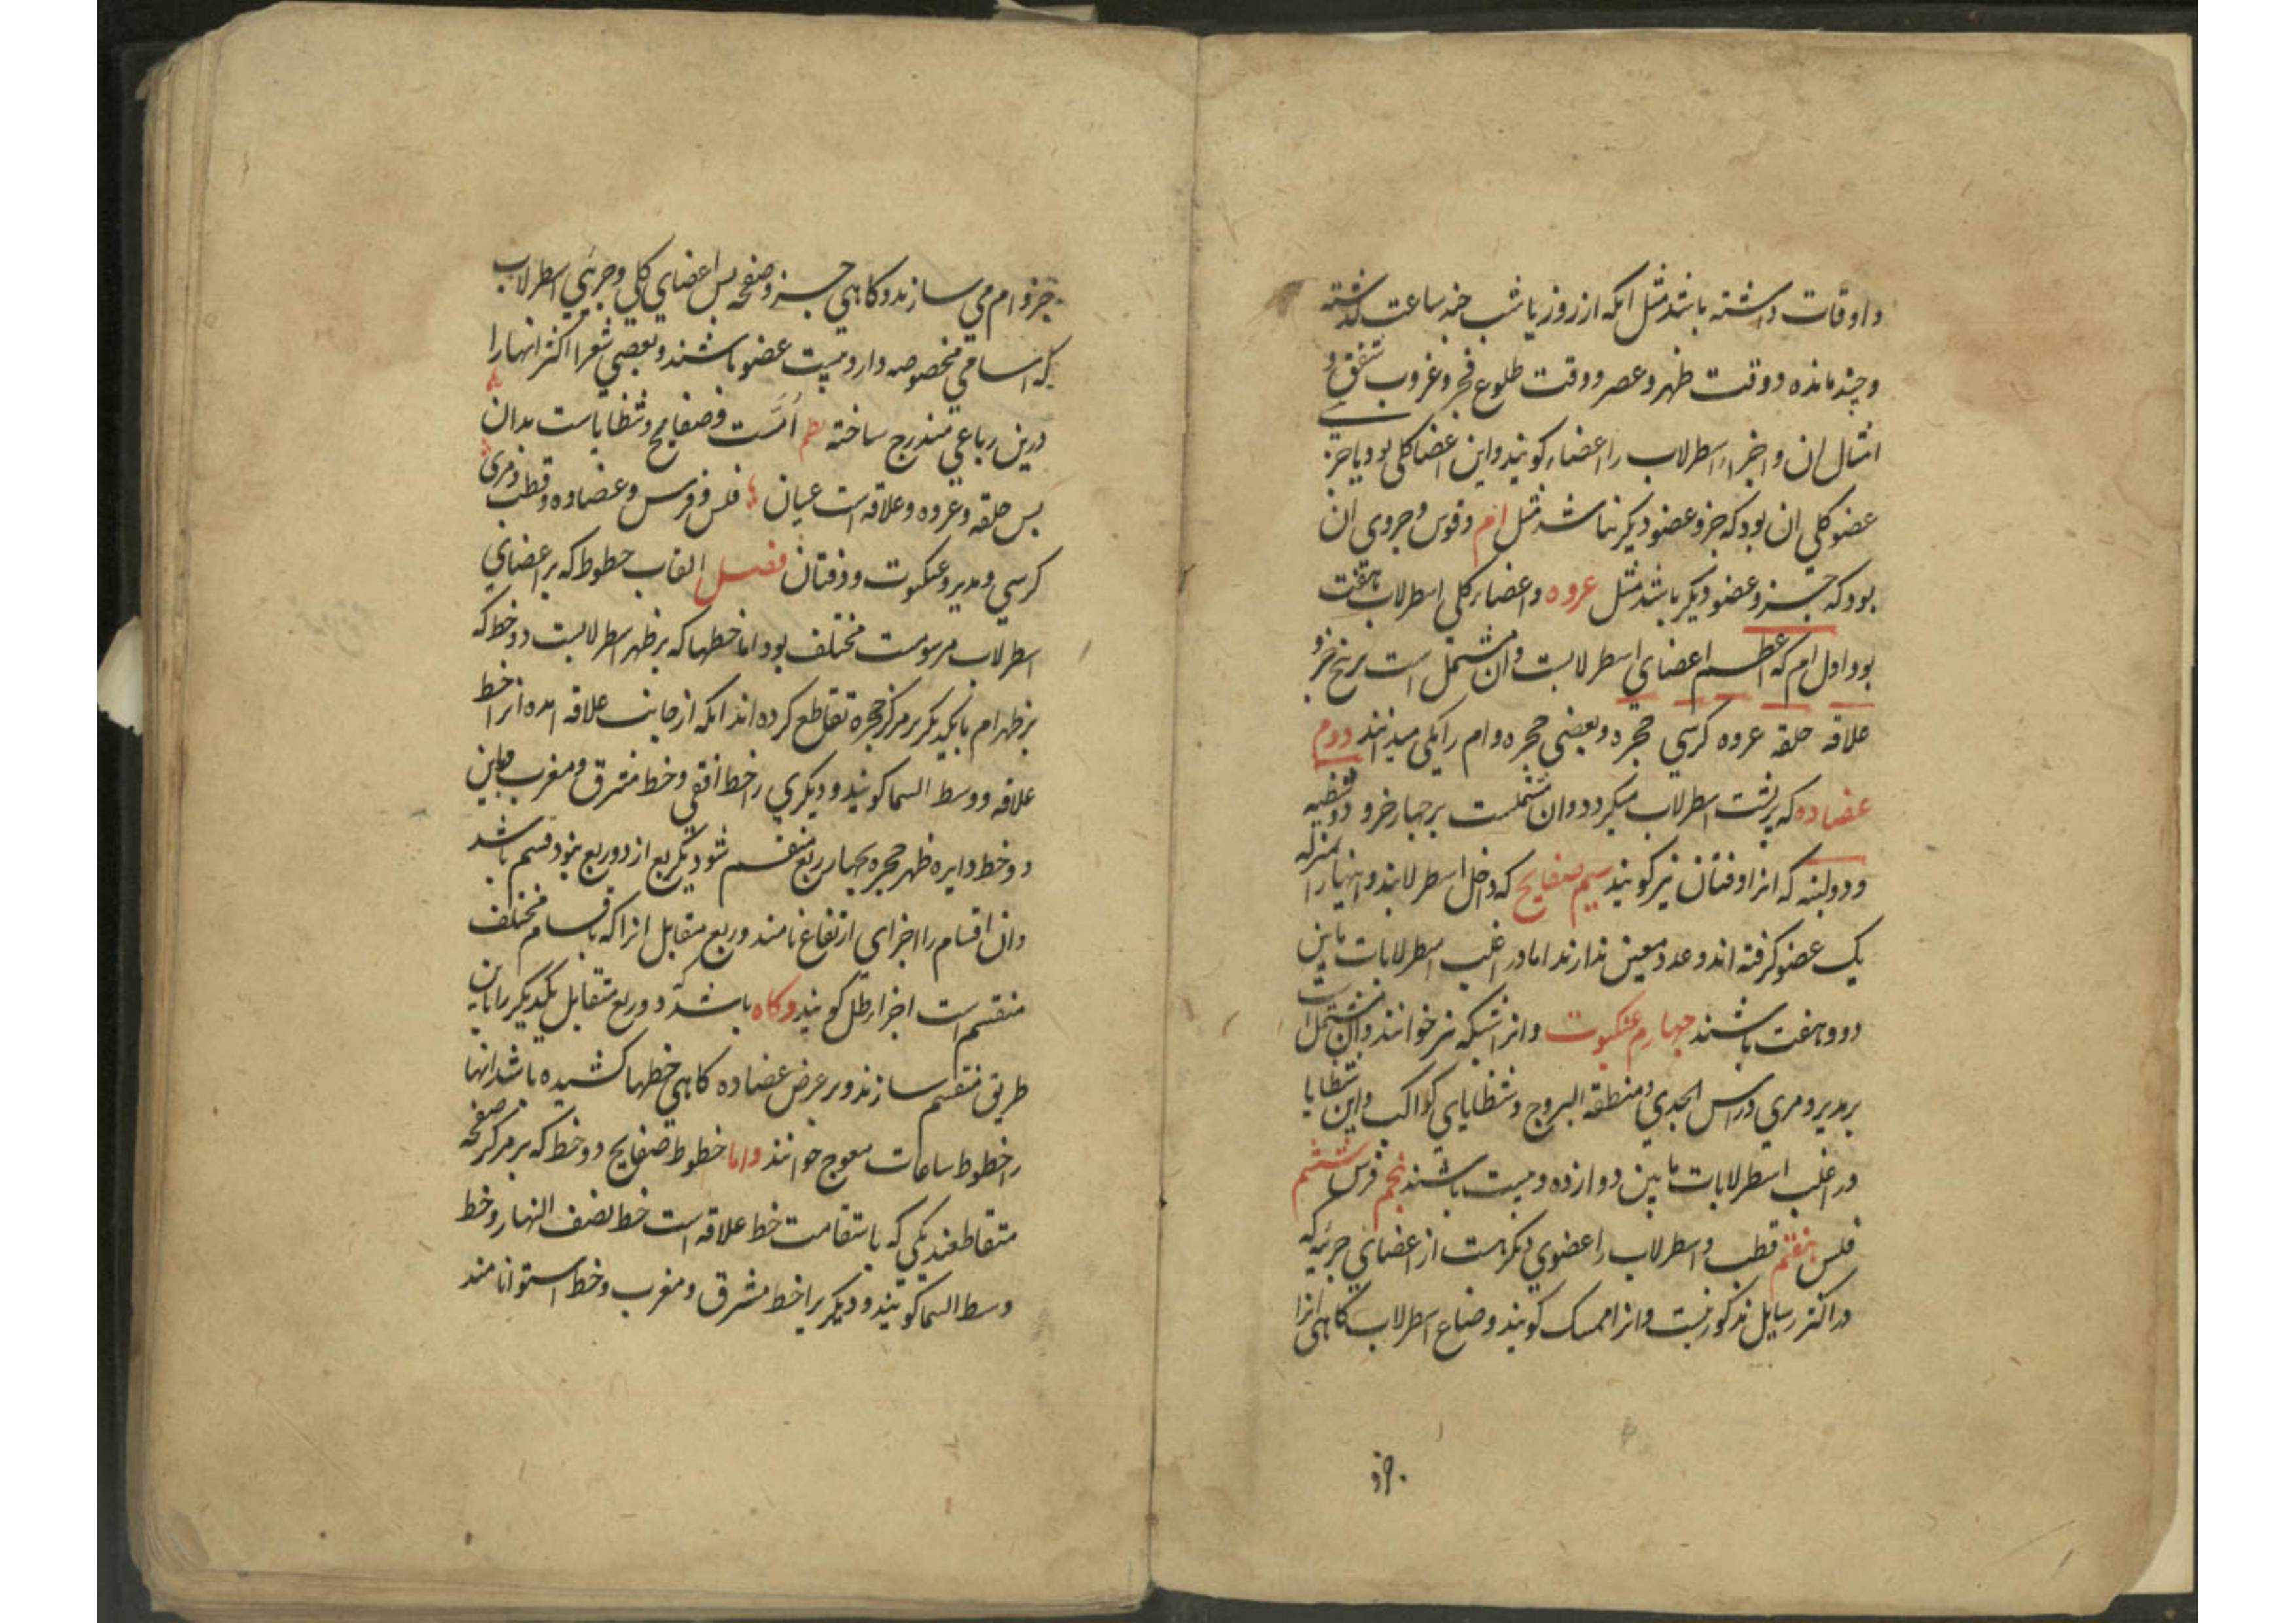 و اوقات داشته باشد مثل انکه از روز یا شب چند ساعت گذشته
و چند مانده و وقت ظهر و عصر و وقت طلوع فجر و غروب شفق و
امثال ان و اجزاء اسطرلاب را اعضاء کویند و این اعضا کلی بود یا جز
عضو کلی ان بود که جزو عضو دیکر نباشد مثل ام و قوس و جزوی ان
بود که جزو عضو دیکر باشد مثل عروه و اعضاء کلی اسطرلاب هفت
بود اول ام که اعظم اعضای اسطرلابست و ان مشتمل است بر پنج جزو
علاقه حلقه عروه کرسی حجره و بعضی حجره و ام را یکی میدانند دوم
عضاده که بر پشت اسطرلاب میکردد و ان مشتملست بر چهار جزو دو شظیه
و دو لبنه که انرا دفتان نیز کویند سیم صفایح که داخل اسطرلابند و اینها را بمنزله
یک عضو کرفته اند و عدد معین ندارند اما در اغلب اسطرلابات مابین
دو و هفت باشند چهارم عنکبوت و انرا شبکه نیز خوانند و ان مشتمل است
بر مدیر و مری و راس الجدی و منطقة البروج و شظایای کواکب و این شظایا
در اغلب اسطرلابات مابین دوازده و بیست باشند پنجم فرس ششم
فلس هفتم قطب و اسطرلاب را عضوی دیکر هست از اعضای جزئیه که
در اکثر رسایل مذکور نیست و انرا ممسک کویند و صناع اسطرلاب کاهی انرا
جزو
جزو ام می سازند و کاهی جزو صفحه پس اعضای کلی و جزیی اسطرلاب
که اسامی مخصوصه دارد بیست عضو باشند و بعضی شعرا اکثر انها را
درین رباعی مندرج ساخته نظم امست و صفایح و شظایاست بدان
پس حلقه و عروه و علاقه است عیان فلس و فرس و عضاده و قطب و مری
کرسی و مدیر و عنکبوت و دفتان فصل القاب خطوط که بر اعضای
اسطرلاب مرسومست مختلف بود اما خطها که بر ظهر اسطرلابست دو خط که
بر ظهر ام با یکدیکر بر مرکز حجره تقاطع کرده اند انکه از جانب علاقه امده انرا خط
علاقه و وسط السما کویند و دیکری را خط افقی و خط مشرق و مغرب و باین
دو خط دایره ظهر حجره بچهار ربع منقسم شود یکربع از دو ربع بنود قسم باشد
و ان اقسام را اجزای ارتفاع نامند و ربع مقابل انرا که باقسام مختلف
منقسم است اجزاء ظل کویند و کاه باشد که دو ربع متقابل یکدیکر را باین
طریق منقسم سازند و بر عرض عضاده کاهی خطها کشیده باشد انها
را خطوط ساعات معوج خوانند و اما خطوط صفایح دو خط که بر مرکز صفحه
متقاطعند یکی که باستقامت خط علاقه است خط نصف النهار و خط
وسط السما کویند و دیکر را خط مشرق و مغرب و خط استوا نامند